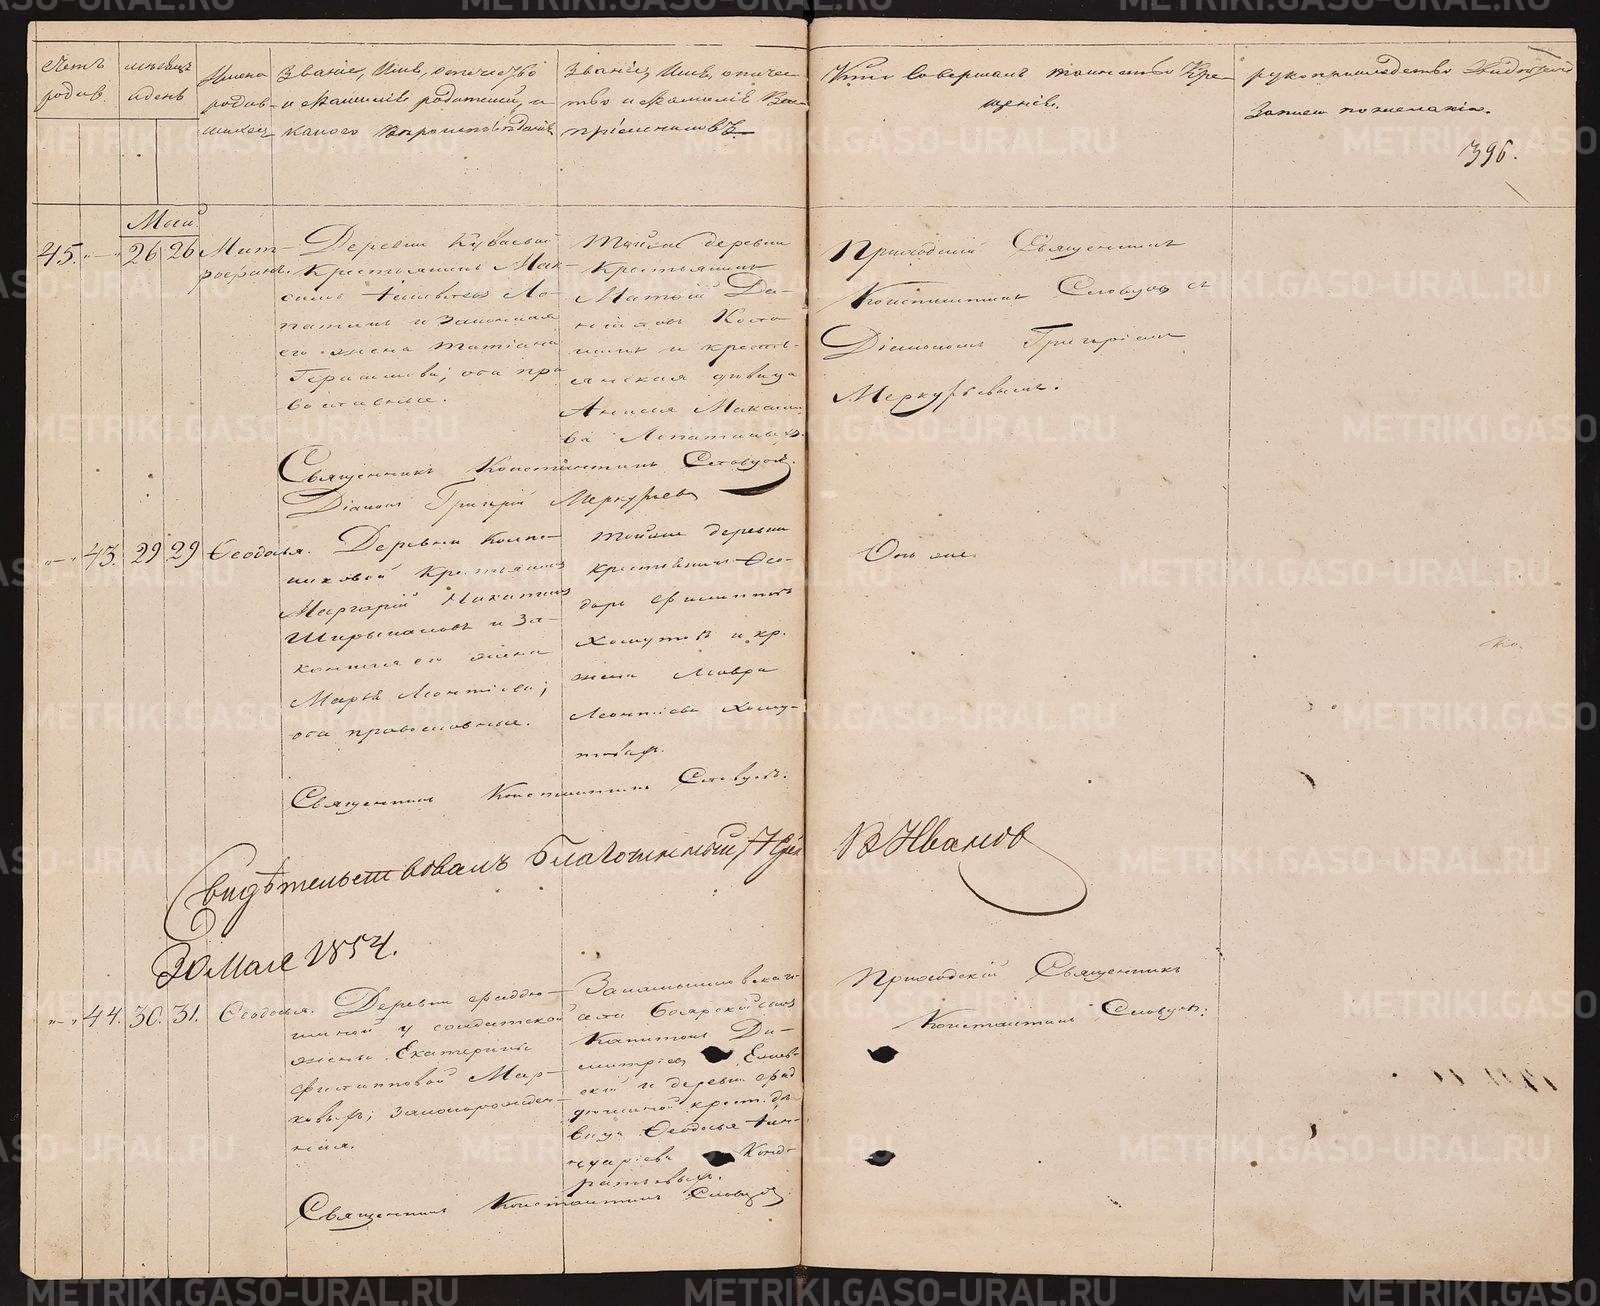 Счетъ родив.
мѣсяцъ и день
Имена родив-шихся
Званіе, Имя, отчество
и Фамилія родителей, и
какого вѣроисповѣданія
Званіе, Имя, отче-
ство и Фамилія Вос-
пріемниковъ.
Кто совершалъ таинство Кре-
щенія.
рукоприкладство Свидѣтелей
Записи по желанію.
396.
Май
45. 26 26 Мит-
рофанъ.
Деревни
Крестьянинъ Мак-
симъ Ло-
патинъ и Законная
его жена Татіана
Герасимова; оба пра-
вославные.
Тойже деревни
Крестьянинъ
Матѳій Да-
ниловъ Коста
и кресть-
янская дѣвица
Анисья Макси-
ва Лопатиныхъ.
Приходскій Священникъ
Константинъ Словцовъ съ
Діакономъ Григоріемъ
Меркурьевымъ.
Священникъ Константинъ Словцовъ.
Діаконъ Григорій Меркурьевъ
43. 29 29 Ѳеодосья.
Деревни Колпа-
никовой Крестьянинъ
Маргарій Никитинъ
и За-
конная его жена
Марья Леонтіева;
оба православные.
Тойже деревни
крестьянинъ Ѳео-
доръ Филипповъ
Хомутовъ и кр.
жена Мавра
Леонтіева Хому-
товыхъ.
Онъ же.
Священникъ Константинъ Словцовъ.
Свидѣтельствовалъ Благочинный, Іерей В Ивановъ
30 Мая 1854.
44. 30. 31. Ѳеодосья.
Деревни Фаддю-
шиной у солдатской
жены Екатерины
Филипповой Мар-
ковыхъ; Законорожден-
ная.
Боярской сынъ
Капитонъ Ди-
митріевъ
и деревни Фад
дюшиной крест. дѣ-
вица Ѳеодосья
нуаріева Конд-
ратьевыхъ.
Приходскій Священникъ
Константинъ Словцовъ.
Священникъ Константинъ Словцовъ
METRIKI.GASO-URAL.RU